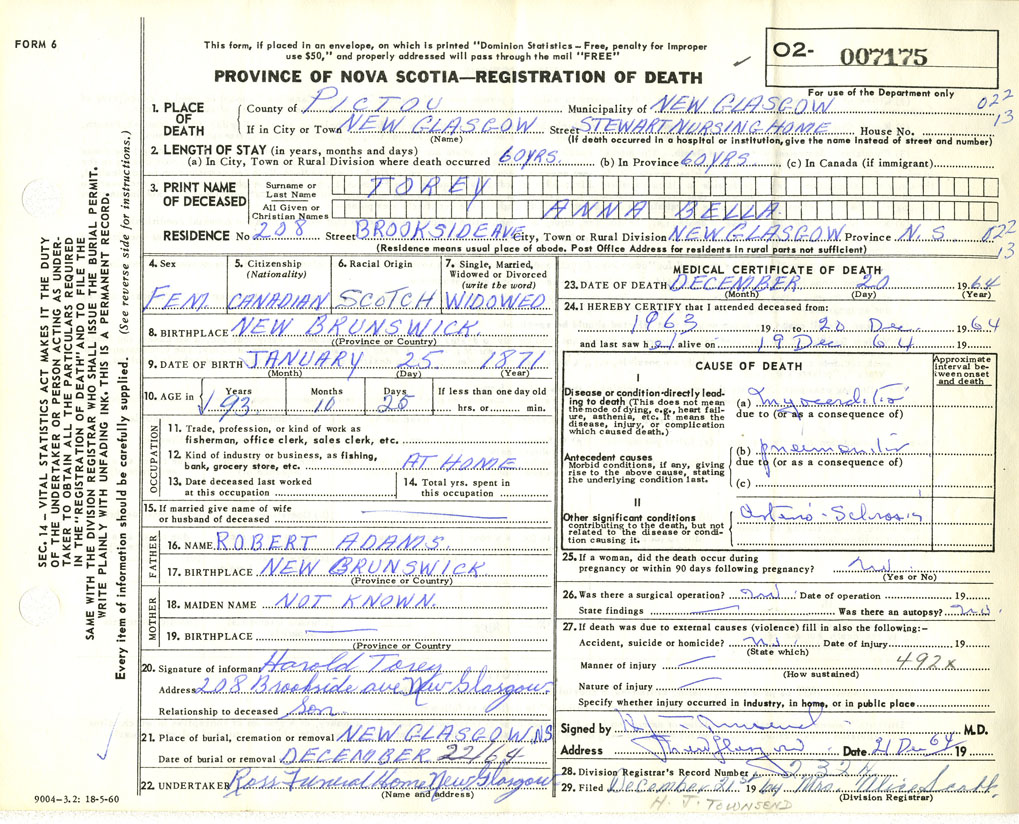 FORM 6
This form, if placed in an envelope, on which is printed "Dominion Statistics – Free, penalty for improper
use $50," and properly addressed will pass through the mail "FREE"
PROVINCE OF NOVA SCOTIA—REGISTRATION OF DEATH
02- 007175
For use of the Department only
022
13
1. PLACE OF DEATH County of PICTOU Municipality of NEW GLASGOW
If in City or Town NEW GLASGOW Street STEWART NURSING HOME House No.
(Name) (If death occurred in a hospital or institution, give the name instead of street and number)
2. LENGTH OF STAY (in years, months and days)
(a) In City, Town or Rural Division where death occurred 60 YRS. (b) In Province 60 YRS (c) In Canada (if immigrant)
3. PRINT NAME OF DECEASED Surname or Last Name TOREY
All Given or Christian Names ANNA BELLA
RESIDENCE No 208 Street BROOKSIDE AVE City, Town or Rural Division NEW GLASGOW Province N.S 022
13
(Residence means usual place of abode. Post Office Address for residents in rural parts not sufficient)
4. Sex 5. Citizenship (Nationality) 6. Racial Origin 7. Single, Married, Widowed or Divorced (write the word)
FEM. CANADIAN SCOTCH WIDOWED
8. BIRTHPLACE NEW BRUNSWICK
(Province or Country)
9. DATE OF BIRTH JANUARY 25 1871
(Month) (Day) (Year)
10. AGE in Years Months Days If less than one day old
93 10 25 hrs. or min.
OCCUPATION
11. Trade, profession, or kind of work as
fisherman, office clerk, sales clerk, etc.
12. Kind of industry or business, as fishing,
bank, grocery store, etc. AT HOME
13. Date deceased last worked at this occupation 14. Total yrs. spent in this occupation
15. If married give name of wife
or husband of deceased
FATHER
16. NAME ROBERT ADAMS.
17. BIRTHPLACE NEW BRUNSWICK
(Province or Country)
MOTHER
18. MAIDEN NAME NOT KNOWN.
19. BIRTHPLACE
(Province or Country)
20. Signature of informant Harold Torey
Address 208 Brookside ave New Glasgow
Relationship to deceased Son
21. Place of burial, cremation or removal NEW GLASGOW NS
Date of burial or removal DECEMBER 22/64
22. UNDERTAKER Ross Funeral Home New Glasgow
(Name and address)
MEDICAL CERTIFICATE OF DEATH
23. DATE OF DEATH DECEMBER 20 1964
(Month) (Day) (Year)
24. I HEREBY CERTIFY that I attended deceased from:
1963 19 to 20 Dec. 1964
and last saw her alive on 19 Dec 64 19
CAUSE OF DEATH
Approximate interval between onset and death
I
Disease or condition directly leading to death (This does not mean the mode of dying, e.g., heart failure, asthenia, etc. It means the disease, injury, or complication which caused death.)
(a) Myocarditis
due to (or as a consequence of)
Antecedent causes
Morbid conditions, if any, giving rise to the above cause, stating the underlying condition last.
(b) pneumonitis
due to (or as a consequence of)
(c)
II
Other significant conditions
contributing to the death, but not related to the disease or condition causing it.
Arterio-Sclrosis
25. If a woman, did the death occur during
pregnancy or within 90 days following pregnancy? no
(Yes or No)
26. Was there a surgical operation? no Date of operation 19
State findings Was there an autopsy? no
27. If death was due to external causes (violence) fill in also the following:–
Accident, suicide or homicide? no Date of injury 19
(State which)
Manner of injury 492x
(How sustained)
Nature of injury
Specify whether injury occurred in industry, in home, or in public place
Signed by H J Townsend M.D.
Address New Glasgow Date 21 Dec 64 19
28. Division Registrar's Record Number
29. Filed December 21st 19 by Mrs. Alice Scott.
(Division Registrar)
H. J. TOWNSEND
SEC. 14 – VITAL STATISTICS ACT MAKES IT THE DUTY
OF THE UNDERTAKER OR PERSON ACTING AS UNDER-
TAKER TO OBTAIN ALL THE PARTICULARS REQUIRED
IN THE "REGISTRATION OF DEATH" AND TO FILE THE
SAME WITH THE DIVISION REGISTRAR WHO SHALL ISSUE THE BURIAL PERMIT.
WRITE PLAINLY WITH UNFADING INK. THIS IS A PERMANENT RECORD.
Every item of information should be carefully supplied. (See reverse side for instructions.)
9004-3.2: 18-5-60